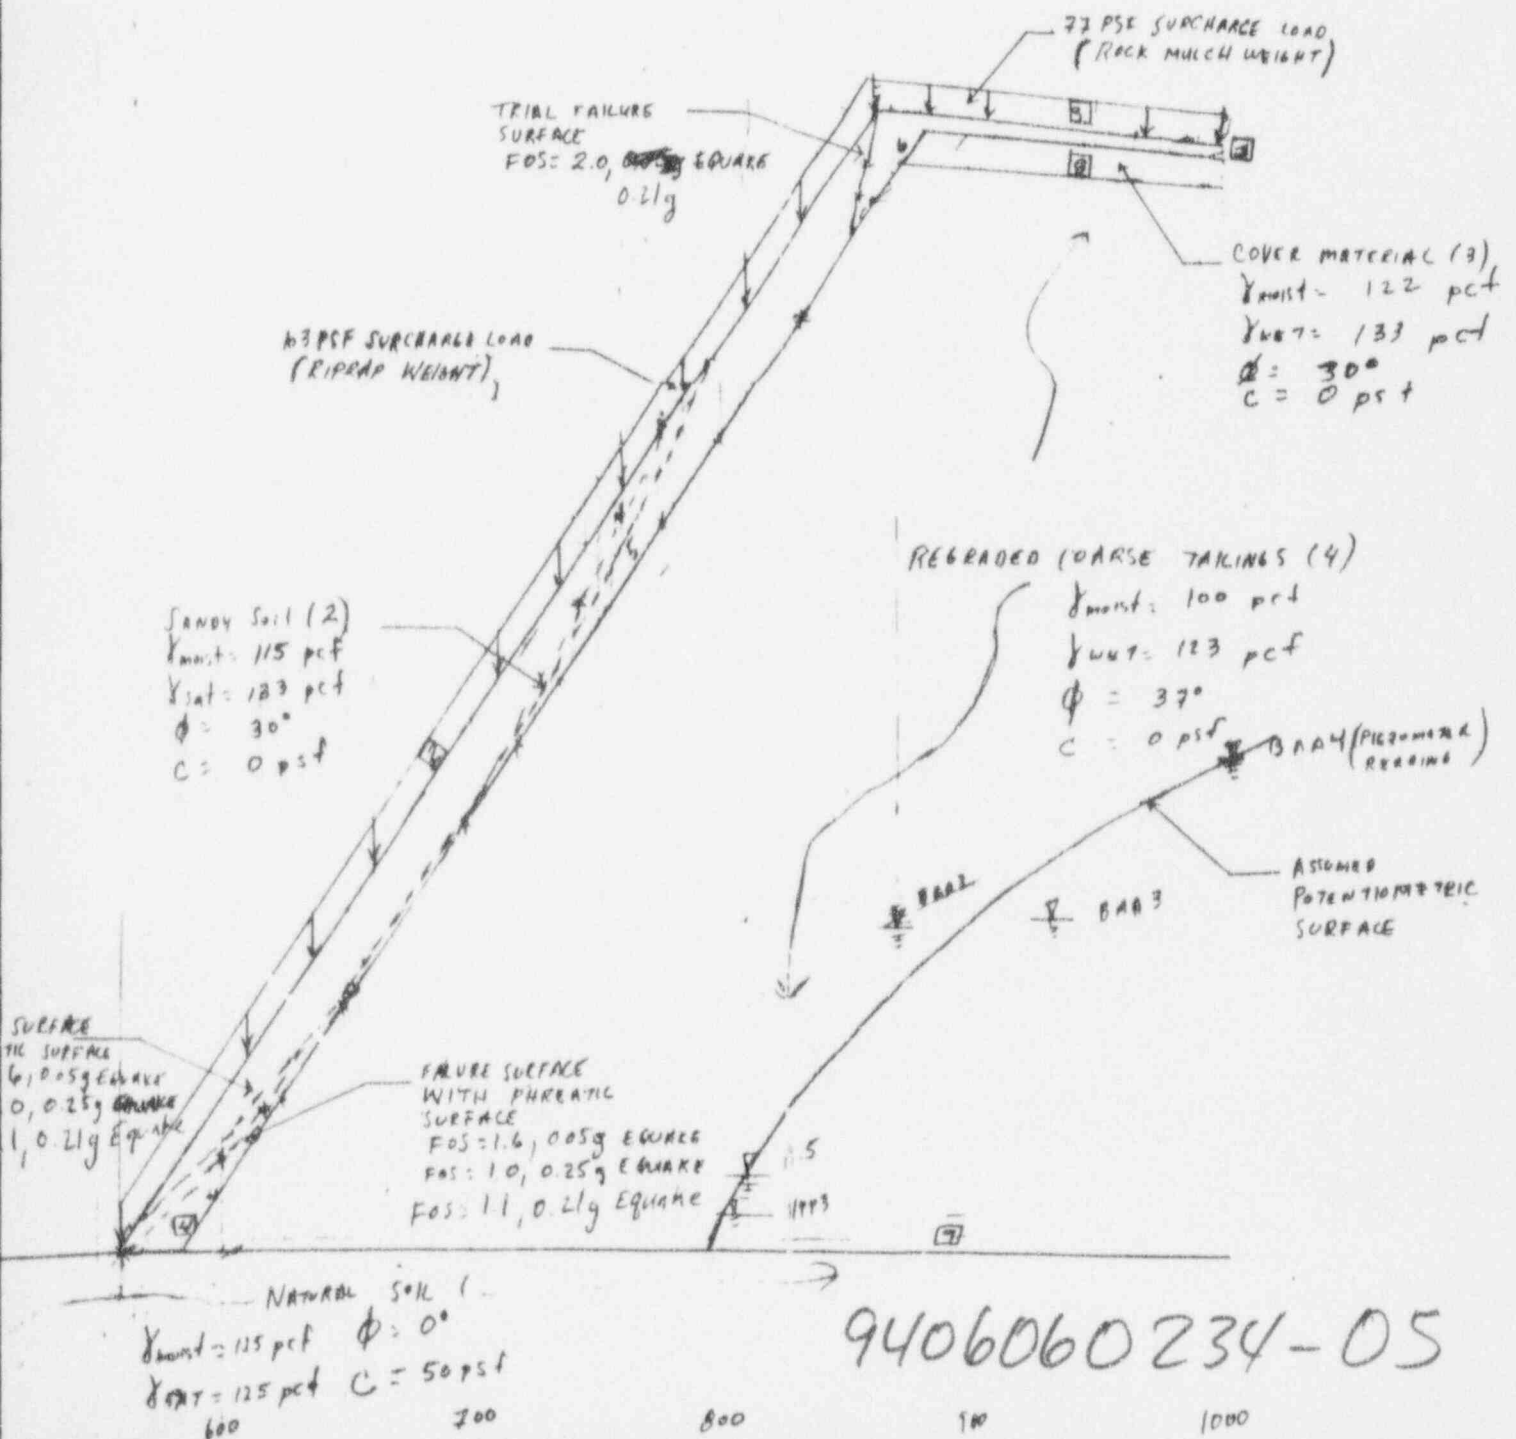 77 PSF SURCHARGE LOAD
(ROCK MULCH WEIGHT)
TRIAL FAILURE
SURFACE
FOS= 2.0, EQUAKE
0.21g
3
2
COVER MATERIAL (3)
γmoist= 122 pcf
γwet= 133 pcf
Φ= 30°
C = 0 psf
63 PSF SURCHARGE LOAD
(RIPRAP WEIGHT)
REGRADED COARSE TAILINGS (4)
γmoist= 100 pcf
γwet= 123 pcf
φ = 37°
C = 0 psf
BAA4 (PIEZOMETER
READING)
SANDY Soil (2)
γmoist= 115 pcf
γsat= 133 pcf
φ= 30°
C= 0 psf
2
ASSUMED
POTENTIOMETRIC
SURFACE
BAA2
BAA3
SURFACE
TIC SURFACE
6, 0.05g EQUAKE
0, 0.25g EQUAKE
1, 0.21g Equake
FAILURE SURFACE
WITH PHREATIC
SURFACE
FOS=1.6, 0.05g EQUAKE
FOS= 1.0, 0.25g EQUAKE
FOS= 1.1, 0.21g Equake
NATURAL SOIL (
γmoist=125 pcf φ= 0°
γSAT=125 pcf C=50psf
9406060234-05
600 700 800 900 1000